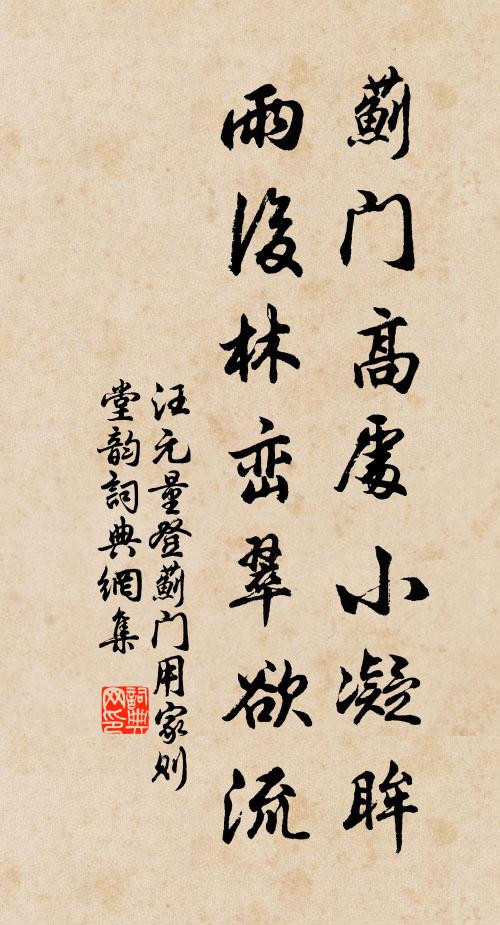 蓟门高處小凝眸
雨後林峦翠欲流
汪元量登蓟门用家则
堂韵詞典網集
詞典
网印